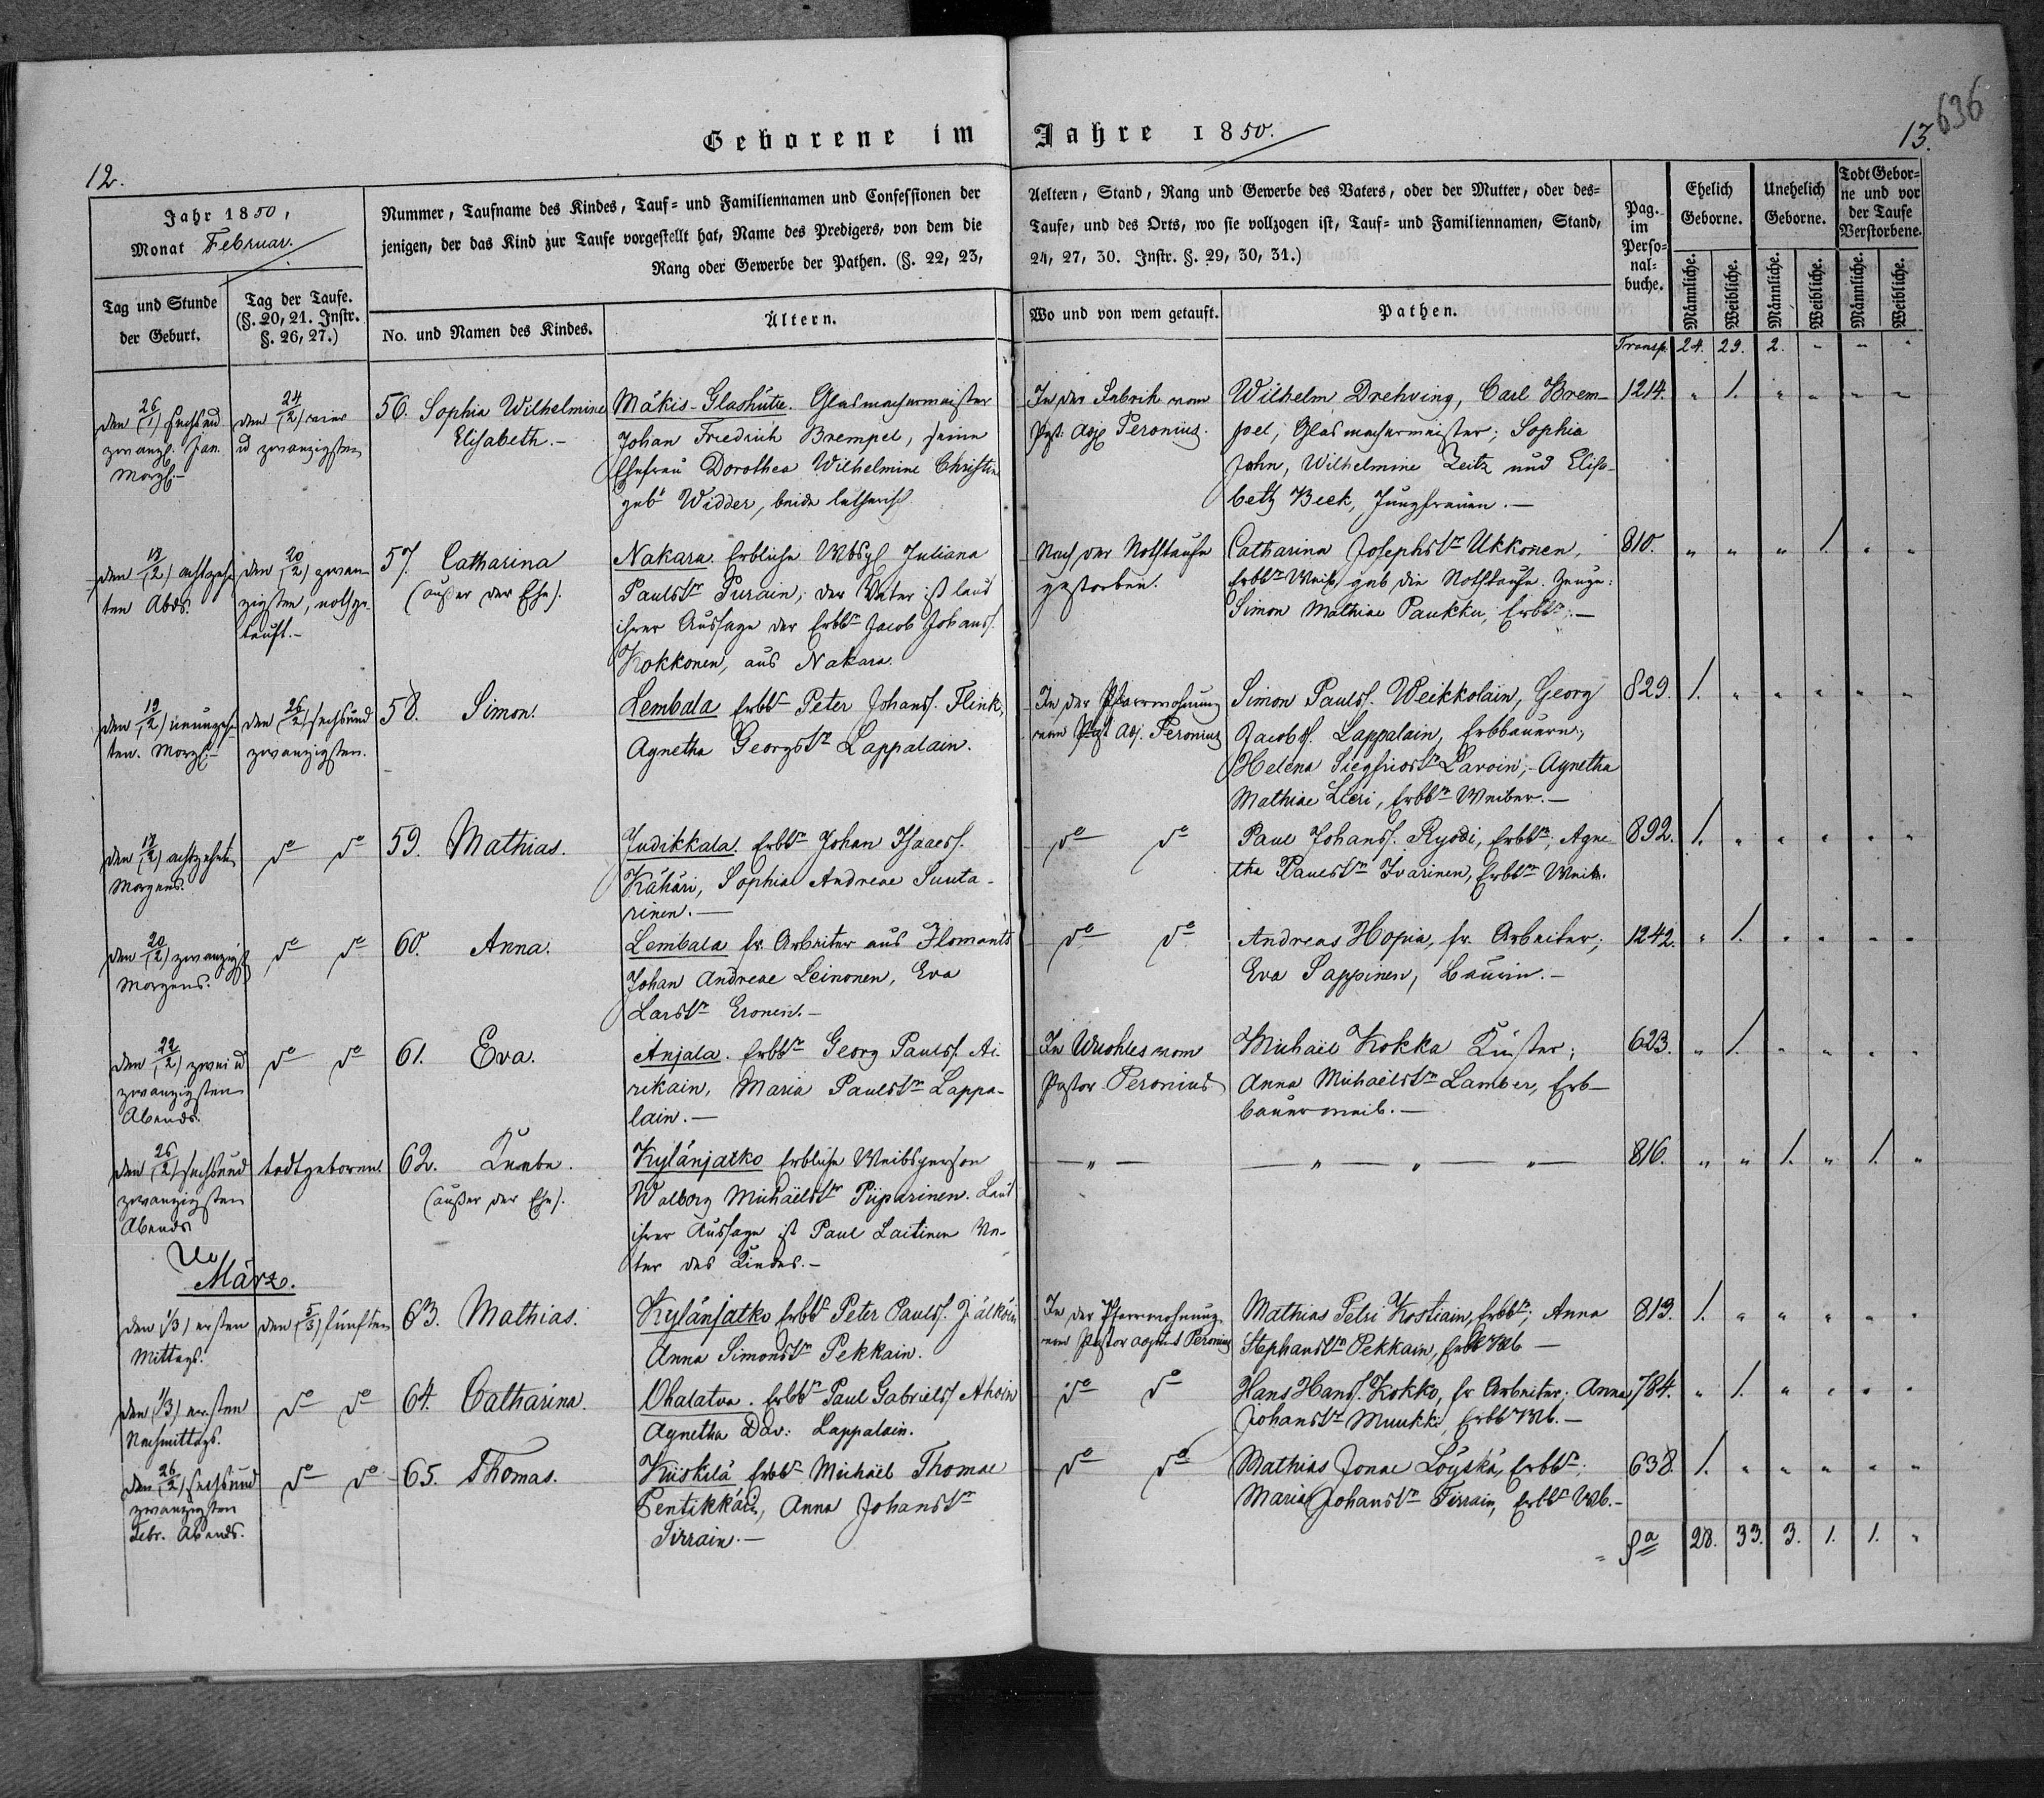 636
Geborene im Jahre 1850.
12.
13.
Jahr 1850,
Monat Februar.
Nummer, Taufname des Kindes, Tauf- und Familiennamen und Confessionen der
jenigen, der das Kind zur Taufe vorgestellt hat, Name des Predigers, von dem die
Rang oder Gewerbe der Pathen. (§. 22, 23,
Aeltern, Stand, Rang und Gewerbe des Vaters, oder der Mutter, oder des-
Taufe, und des Orts, wo sie vollzogen ist, Tauf- und Familiennamen, Stand,
24, 27, 30. Instr. §. 29, 30, 31.)
Pag.
im
Perso-
nal-
buche.
Ehelich
Geborne.
Unehelich
Geborne.
Todt Gebor-
ne und vor
der Taufe
Verstorbene.
Tag und Stunde
der Geburt.
Tag der Taufe.
(§. 20, 21. Instr.
§. 26, 27.)
No. und Namen des Kindes.
Ältern.
Wo und von wem getauft.
Pathen.
Männliche.
Weibliche.
Männliche.
Weibliche.
Männliche.
Weibliche.
Transp. 24. 29. 2. " " "
den 26/1) sechsund
zwanzg. Jan.
Morg.
den 24/2) vier
u zwanzigsten
56. Sophia Wilhelmine
Elisabeth.
Mäkis-Glashütte. Glasmachermeister
Johan Friedrich Brempel, seine
Ehefrau Dorothea Wilhelmine Christin
geb Widder, beide lutherisch
In der Fabrik vom
Past. Adj Peronius.
Wilhelm Drehving, Carl Brem-
pel, Glasmachermeister; Sophia
John, Wilhelmine Zeitz und Elisa-
beth Beck, Jungfrauen.
1214. " 1. " " " "
ten Abds.
den 20/2) zwan
zigsten, nothge
tauft.
57. Catharina
(außer der Ehe).
Nakara. Erbliche Wbsp Juliana
Paulstr Purain, der Vater ist laut
ihrer Aussage der Erbbr Jacob Johanss.
Kokkonen, aus Nakara.
Nach der Nothtaufe
gestorben.
Catharina Josephstr Ukkonen,
Erbbr Weib, gab die Nothtaufe. Zeuge:
Simon Mathiae Paukku, Erbbr.
810. " " " 1. " "
den 19/2) neunzehn
ten. Morg.
den 26/2) sechsund
zwanzigsten.
58. Simon.
Lembala Erbbr Peter Johanss. Flink,
Agnetha Georgstr Lappalain.
In der Pfarrwohnung
vom Past Adj. Peronius
Simon Paulss. Weikkolain, Georg
Jacobss. Lappalain, Erbbauern,
Helena Siegfriedstr Paroin, Agnetha
Mathiae Lieri, Erbbr Weiber.
829. 1. " " " " "
achtzehnten
Morgens.
do do
59. Mathias.
Judikkala. Erbbr Johan Isaacss.
Kähäri, Sophia Andreae Suuta-
rinen.
do do
Paul Johanss. Ryödi, Erbbr; Agne-
tha Paulstr Ivarinen, Erbbr Weib.
892. 1. " " " " "
den 20/2) zwanzigst
Morgens.
do do
60. Anna.
Lembala fr. Arbeiter aus Ilomants
Johan Andreae Leinonen, Eva
Larstr Eronen.
do do
Andreas Hopia, fr. Arbeiter;
Eva Sappinen, Bäurin.
1242. " 1. " " " "
den 22/2) zwei u
zwanzigsten
Abends.
do do
61. Eva.
Anjala. Erbbr Georg Paulss. Ai-
rikain, Maria Paulstr Lappa-
lain.
In Wuohles vom
Pastor Peronius
Michaël Kokka Küster;
Anna Michaëlstr Lamber, Erb-
bauerweib.
623. " 1. " " " "
den 26/2) sechsund
zwanzigsten
Abends
todtgeboren.
62. Knabe.
(außer der Ehe).
Kylänjatko Erbliche Weibsperson
Walborg Michaëlstr Piiparinen. Laut
ihrer Aussage ist Paul Laitinen Va-
ter des Kindes.
" " " "
816. " " 1. " 1. "
März.
den 1/3) ersten
Mittags.
den 5/3) fünften
63. Mathias.
Kylänjatko Erbbr Peter Paulss. Jälköin
Anna Simonstr Pekkain.
In der Pfarrwohnung
vom Pastor Peronius
Mathias Petri Kostiain, Erbbr; Anna
Stephanstr Pekkain, Erbbr Wb
813. 1. " " " " "
den 1/3) ersten
Nachmittags.
do do
64. Catharina.
Ohalatva. Erbbr Paul Gabrielss Ahoin
Agnetha Dav: Lappalain.
do do
Hans Hanss. Kokko, fr Arbeiter; Anna
Johanstr Muukki, Erbbr Wb.
784. " 1. " " " "
den 26/2) sechsund
zwanzigsten
Febr. Abends.
do do
65. Thomas.
Kiiskilä Erbbr Michaël Thomae
Pentikkäin, Anna Johanstr
Tirrain.
do do
Mathias Jonae Löyskä, Erbbr;
Maria Johanstr Tirrain, Erbbr Wb.
638. 1. " " " " "
Sa 28. 33. 3. 1. 1. "